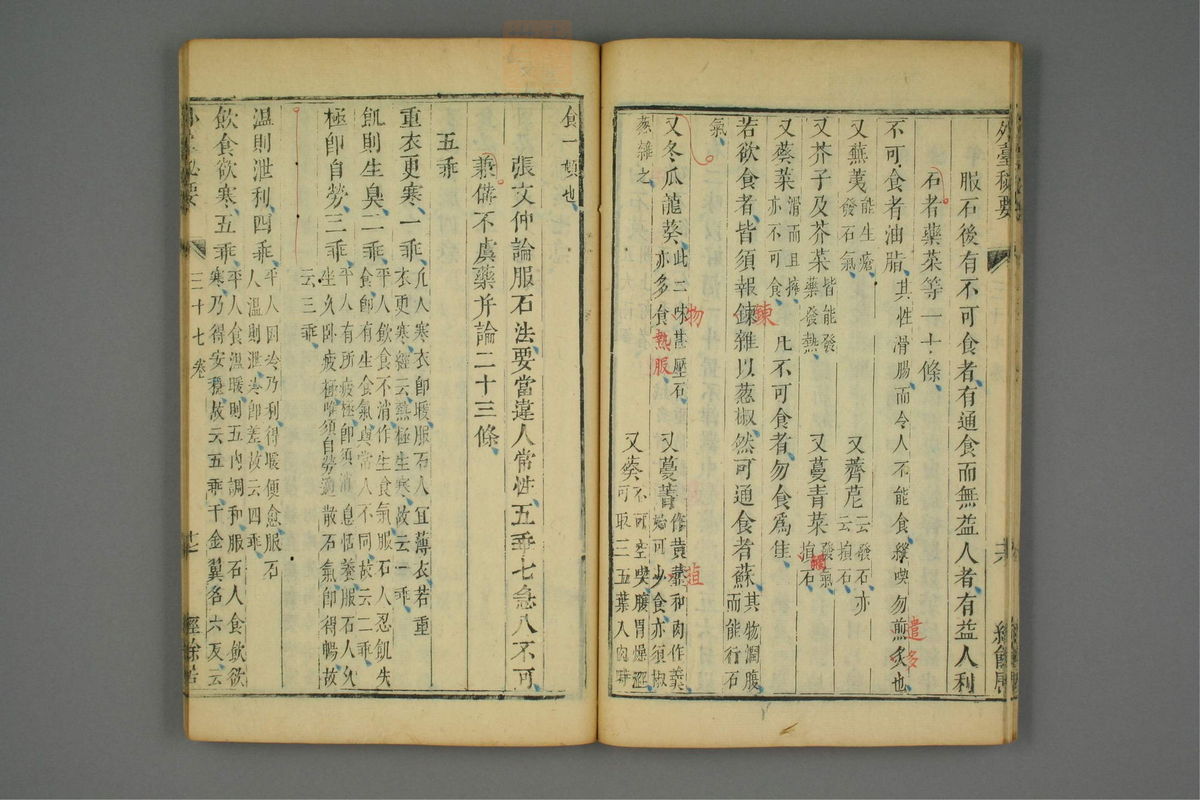 外臺秘要
服石後有不可食者有通食而無益人者有益人利
石者藥菜等一十條
不可食者油脂其性滑腸而令人不能食縱喫勿煎炙也
遣多
又蕪荑能生瘡
發石氣
又薺苨云發石亦
云損石
又芥子及芥菜皆能發
藥發熱
又蔓青菜發氣
損石
觸
又葵菜滑而且擁
亦不可食
凡不可食者勿食爲佳
若欲食者皆須報鍊雜以葱椒然可通食者蘇其物潤腹
而能行石
氣
鍊
又冬瓜龍葵此二味甚壓石
亦多食熱服
物
又蔓菁作黄虀和肉作羹
始可少食亦須椒
葱雜之
又葵不可空喫腹胃燥澀
可取三五葉入肉時
食一頓也
張文仲論服石法要當違人常性五乖七急八不可
兼備不虞藥并論二十三條
五乖
重衣更寒一乖凡人寒衣即暖服石人宜薄衣若重
衣更寒經云熱極生寒故云一乖
飢則生臭二乖平人飲食不消作生食氣服石人忍飢失
食即有生食氣與常人不同故云二乖
極即自勞三乖平人有所疲極即須消息恬養服石人久
坐久卧疲極唯須自勞適散石氣即得暢故
云三乖
温則泄利四乖平人因冷乃利得暖便愈服石
人温則泄冷即差故云四乖
飲食欲寒五乖平人食温暖則五内調和服石人食飲欲
寒乃得安穩故云五乖千金翼名六反云
三十七卷
經餘居